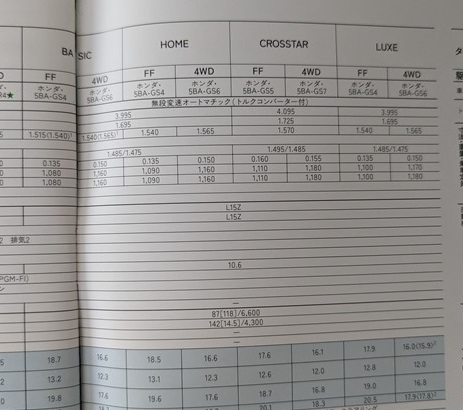 BA SIC HOME CROSSTAR LUXE
FF 4WD FF 4WD FF 4WD FF 4WD
ホンダ・ ホンダ・ ホンダ・ ホンダ・ ホンダ・ ホンダ・ ホンダ・ ホンダ・
5BA-GS4 5BA-GS6 5BA-GS4 5BA-GS6 5BA-GS5 5BA-GS7 5BA-GS4 5BA-GS6
無段変速オートマチック(トルクコンバーター付)
3.995 4.095 3.995
1.695 1.725 1.695
1.515(1.540) 1.540(1.565) 1.540 1.565 1.570 1.540 1.565
1.485/1.475 1.495/1.485 1.485/1.475
0.135 0.150 0.135 0.150 0.160 0.155 0.135 0.150
1,080 1,160 1,090 1,160 1,110 1,180 1,100 1,170
1,080 1,160 1,090 1,160 1,110 1,180 1,100 1,180
L15Z
L15Z
2 排気2
10.6
PGM-FI)
—
87[118]/6,600
142[14.5]/4,300
—
—
18.7 16.6 18.5 16.6 17.6 16.1 17.9 16.0(15.9)
13.2 12.3 13.1 12.3 12.6 12.0 12.8 12.0
19.8 17.6 19.6 17.6 18.7 16.8 19.0 16.8
18.3 20.5 17.9(17.8)